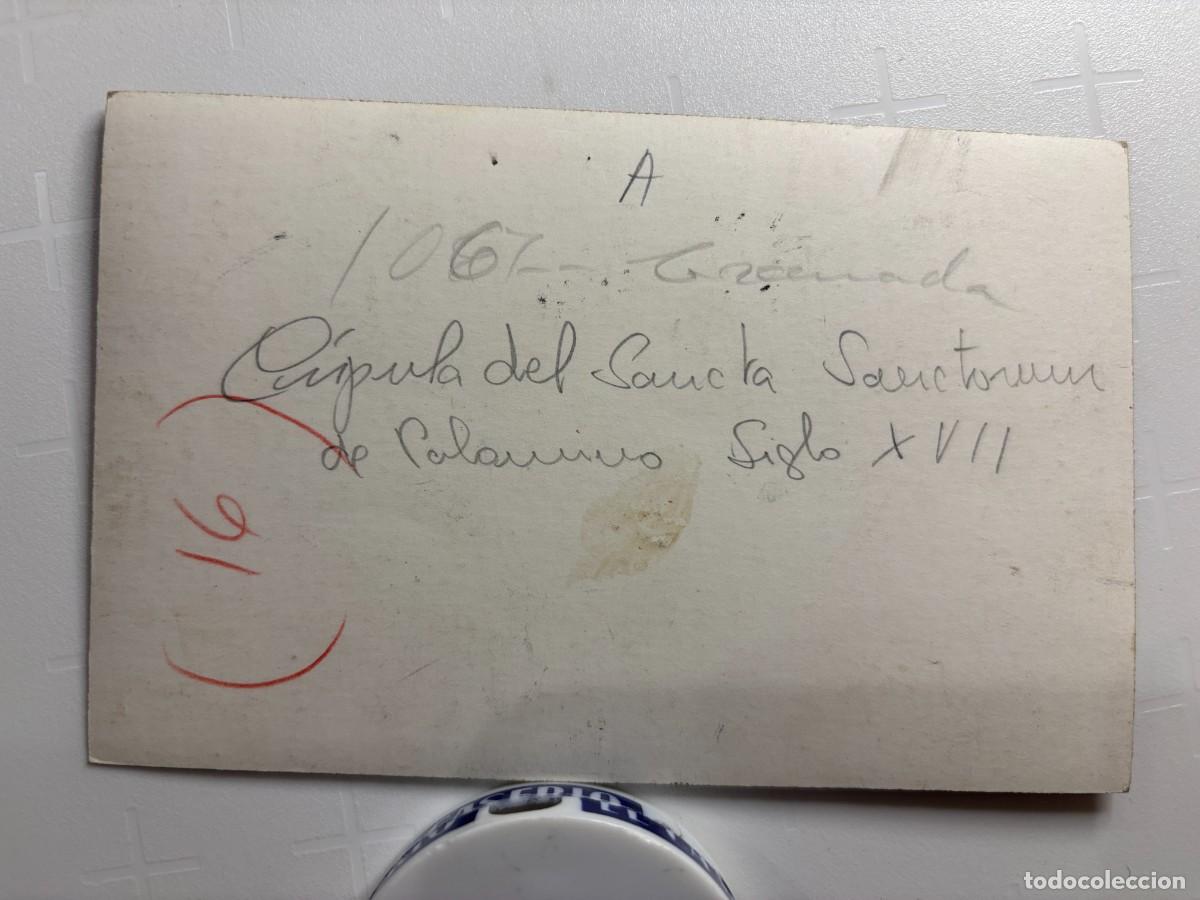 A
Granada
Cúpula del Sancta Sanctorum
de Palomino Siglo XVII
(16)
todocoleccion